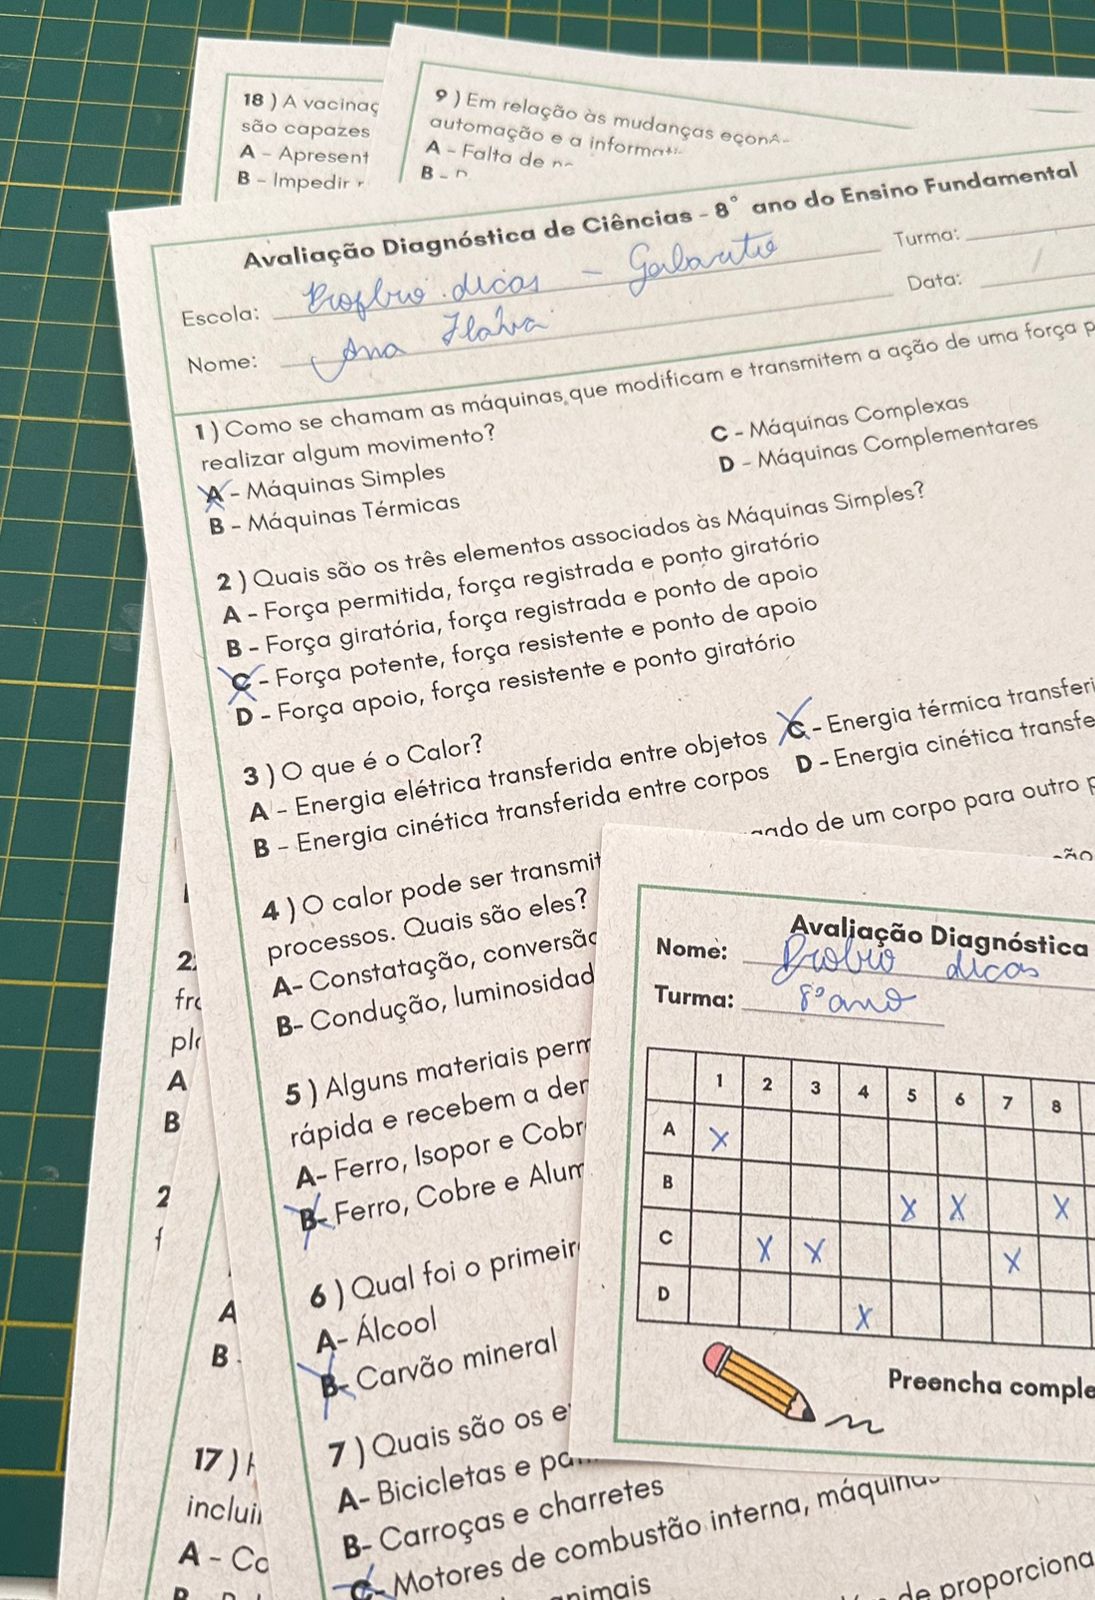 18 ) A vacinaç
são capazes
A - Apresent
B - Impedir
9 ) Em relação às mudanças econ
automação e a informati
A - Falta de
B -
Avaliação Diagnóstica de Ciências - 8° ano do Ensino Fundamental
Escola: Profbio.dicas - Gabarito Turma:
Nome: Ana Flávia Data:
1 ) Como se chamam as máquinas que modificam e transmitem a ação de uma força p
realizar algum movimento?
A - Máquinas Simples
B - Máquinas Térmicas
C - Máquinas Complexas
D - Máquinas Complementares
2 ) Quais são os três elementos associados às Máquinas Simples?
A - Força permitida, força registrada e ponto giratório
B - Força giratória, força registrada e ponto de apoio
C - Força potente, força resistente e ponto de apoio
D - Força apoio, força resistente e ponto giratório
3 ) O que é o Calor?
A - Energia elétrica transferida entre objetos
B - Energia cinética transferida entre corpos
C - Energia térmica transferi
D - Energia cinética transfe
4 ) O calor pode ser transmit ado de um corpo para outro p
processos. Quais são eles? ão
A- Constatação, conversão
B- Condução, luminosidad
5 ) Alguns materiais perm
rápida e recebem a der
A- Ferro, Isopor e Cobr
B- Ferro, Cobre e Alum
6 ) Qual foi o primeir
A- Álcool
B- Carvão mineral
7 ) Quais são os e
A- Bicicletas e pa
B- Carroças e charretes
C- Motores de combustão interna, máquinas
nimais
de proporciona
Avaliação Diagnóstica
Nome: Probio dicas
Turma: 8º ano
1 2 3 4 5 6 7 8
A X
B X X X
C X X X
D X
Preencha comple
2
fro
pla
A
B
2
f
A
B -
17 )
inclui
A - Co
B